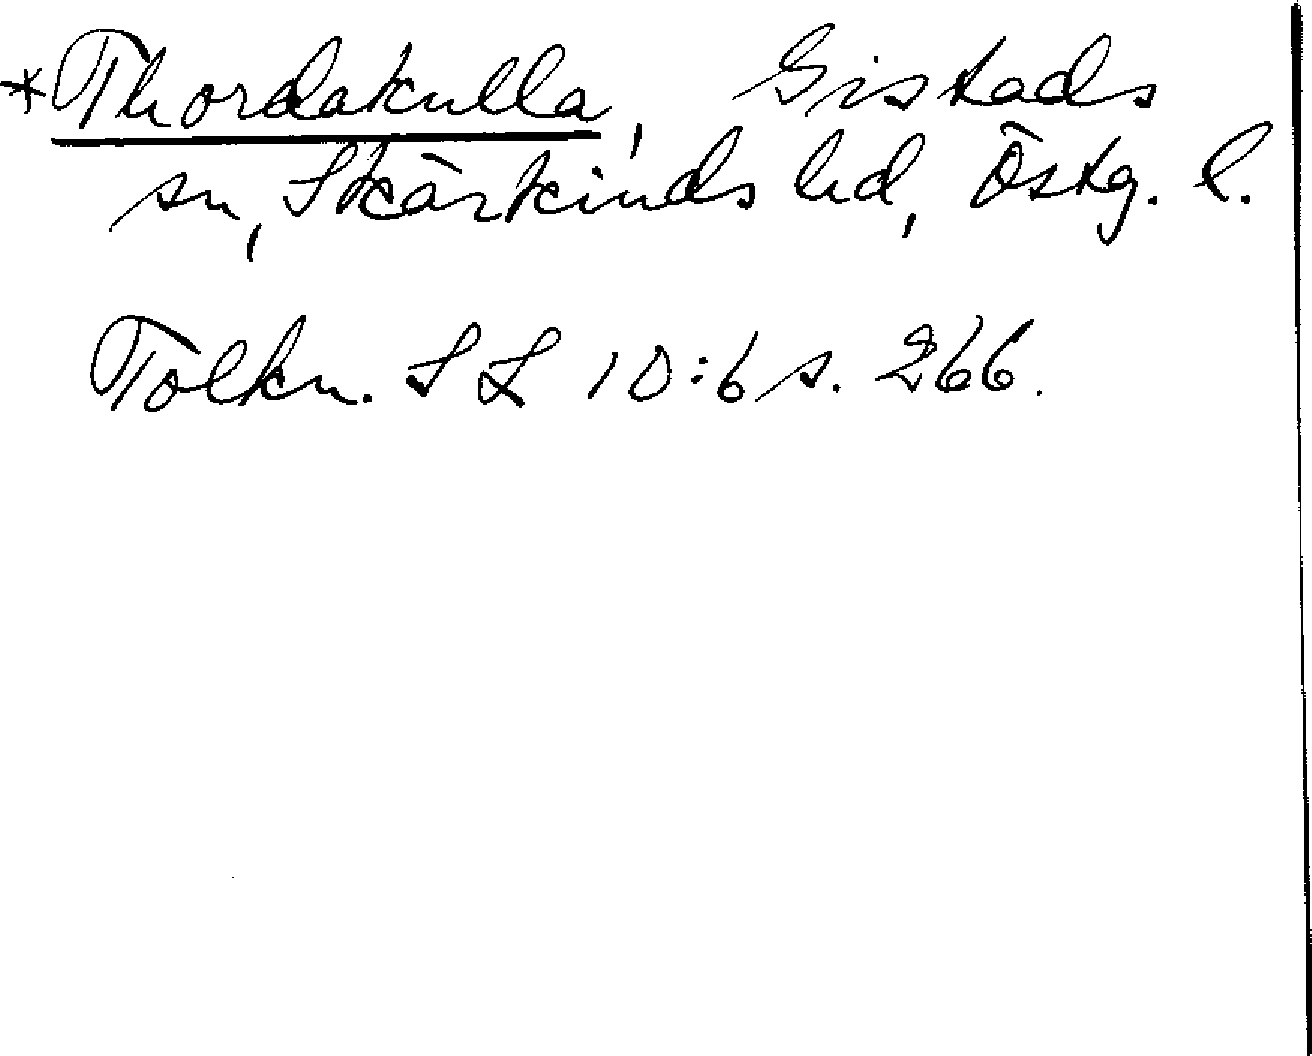 *Thordakulla, Gistads
sn, Skärkinds hd, Östg. l.
Tolkn. SL 10:6 s. 266.